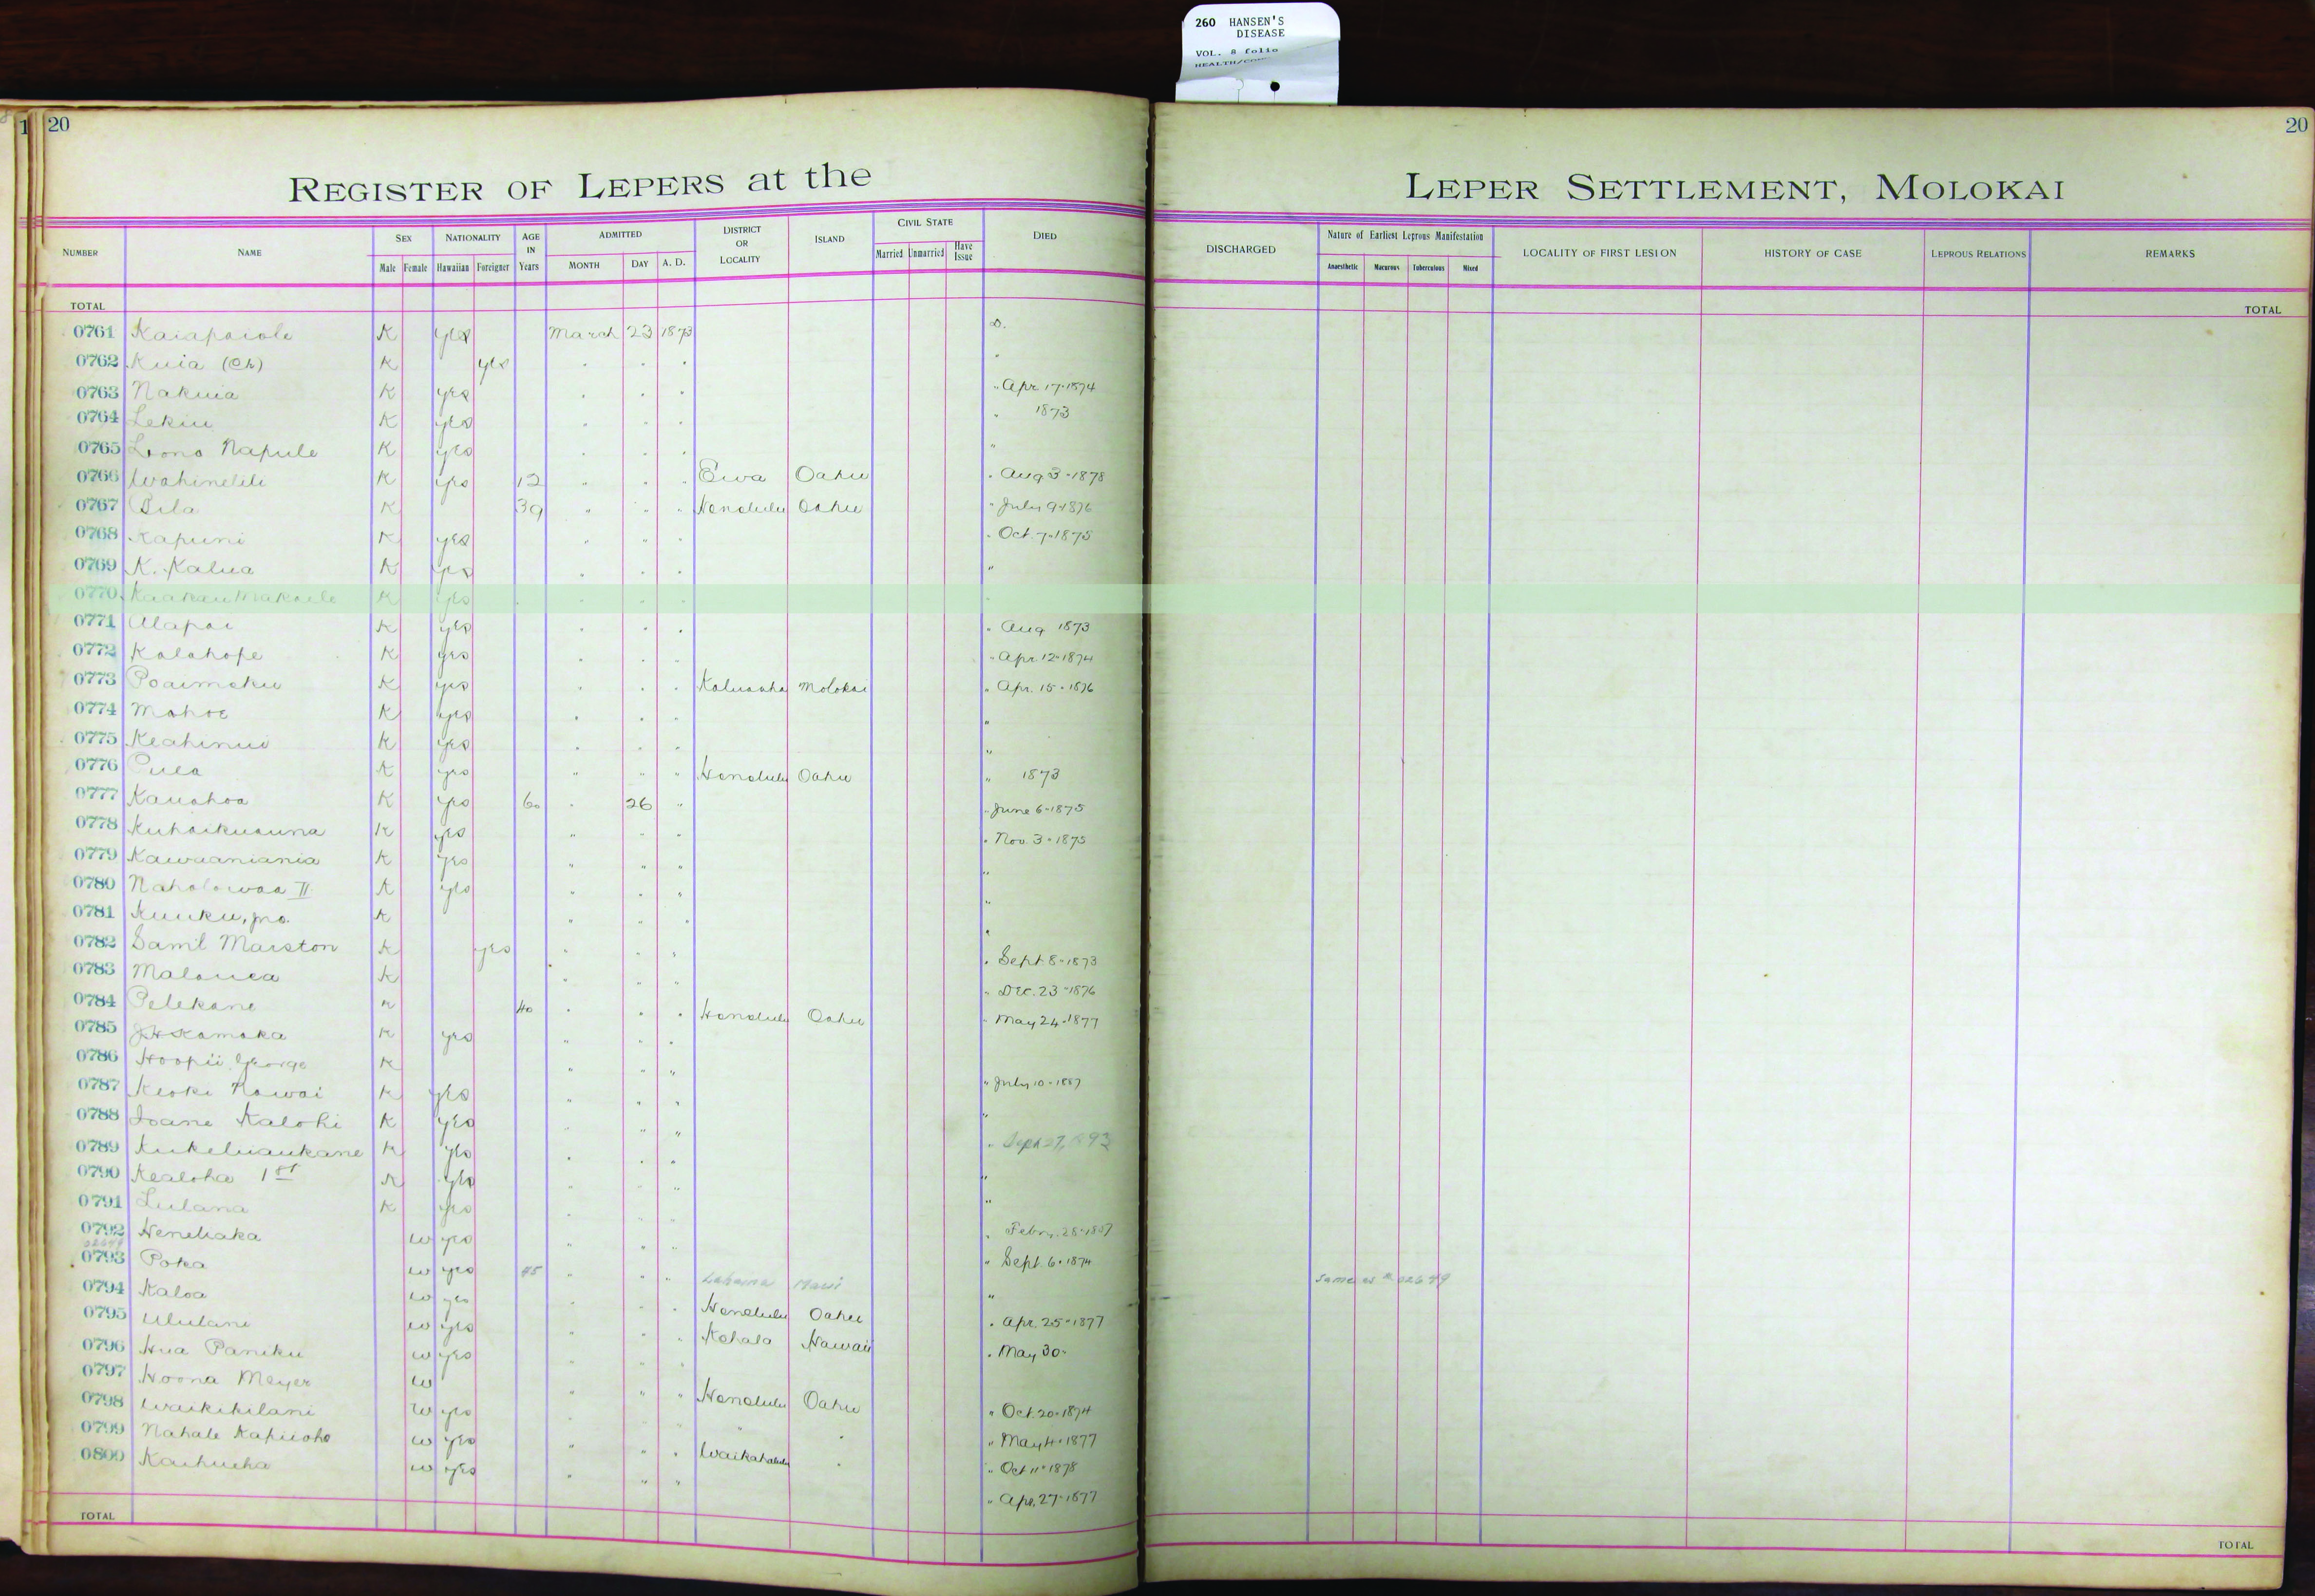 260 HANSEN'S
DISEASE
VOL. 8 folio
20
20
REGISTER OF LEPERS at the LEPER SETTLEMENT, MOLOKAI
NUMBER NAME SEX Male Female NATIONALITY Hawaiian Foreigner AGE IN Years ADMITTED MONTH DAY A. D. DISTRICT OR LOCALITY ISLAND CIVIL STATE Married Unmarried Have Issue DIED
DISCHARGED Nature of Earliest Leprous Manifestation Anaesthetic Macurous Tuberculous Mixed LOCALITY OF FIRST LESION HISTORY OF CASE LEPROUS RELATIONS REMARKS
TOTAL TOTAL
0761 Kaiapaiole K yes March 23 1873 D.
0762 Kuia (Ch) K yes " " " "
0763 Nakuia K yes " " " " Apr 17-1874
0764 Lekiu K yes " " " " 1873
0765 Lono Napule K yes " " " "
0766 Wahinelili K yes 12 " " " Ewa Oahu " Aug 3-1878
0767 Pila K 39 " " " Honolulu Oahu " July 9-1876
0768 Kapuni K yes " " " " Oct. 7-1875
0769 K. Kalua K yes " " " "
0770 Kaakau Makaele K yes " " " "
0771 Alapai K yes " " " " Aug 1873
0772 Kalahope K yes " " " " Apr. 12-1874
0773 Poaimoku K yes " " " Kaluaaha Molokai " Apr. 15-1876
0774 Mahoe K yes " " " "
0775 Keahinui K yes " " " "
0776 Puea K yes " " " Honolulu Oahu " 1873
0777 Kauahoa K yes 60 " 26 " " June 6-1875
0778 Kuhaikuauna K yes " " " " Nov. 3-1875
0779 Kawaaniania K yes " " " "
0780 Naholowaa II K yes " " " "
0781 Kuuku, K " " " "
0782 Saml Marston K yes " " " " Sept 8-1873
0783 Malouea K " " " " Dec. 23-1876
0784 Pelekane K 40 " " " Honolulu Oahu " May 24-1877
0785 J.H. Kamaka K yes " " "
0786 Hoopii George K " " " " July 10-1887
0787 Keoki Nawai K yes " " " "
0788 Ioane Kalohi K yes " " " " Sept 27,
0789 Kukeliaukane K yes " " " "
0790 Kealoha 1st K yes " " " "
0791 Lulana K yes " " " " Febr. 28-
0792 Henehaka W yes " " " " Sept. 6-1874
02649
0793 Poka W yes 45 " " " Lahaina Maui " Same as # 02649
0794 Kaloa W yes " " " Honolulu Oahu " Apr. 25-1877
0795 Ululani W yes " " " Kohala Hawaii " May 30-
0796 Hua Paniku W yes " " "
0797 Hoona Meyer W " " " Honolulu Oahu " Oct. 20-1874
0798 Waikikilani W yes " " " " " " May 4-1877
0799 Nahale Kapiioho W yes " " " Waikahalulu " " Oct 11-1878
0800 Kaihueha W yes " " " " Apr. 27-1877
TOTAL TOTAL